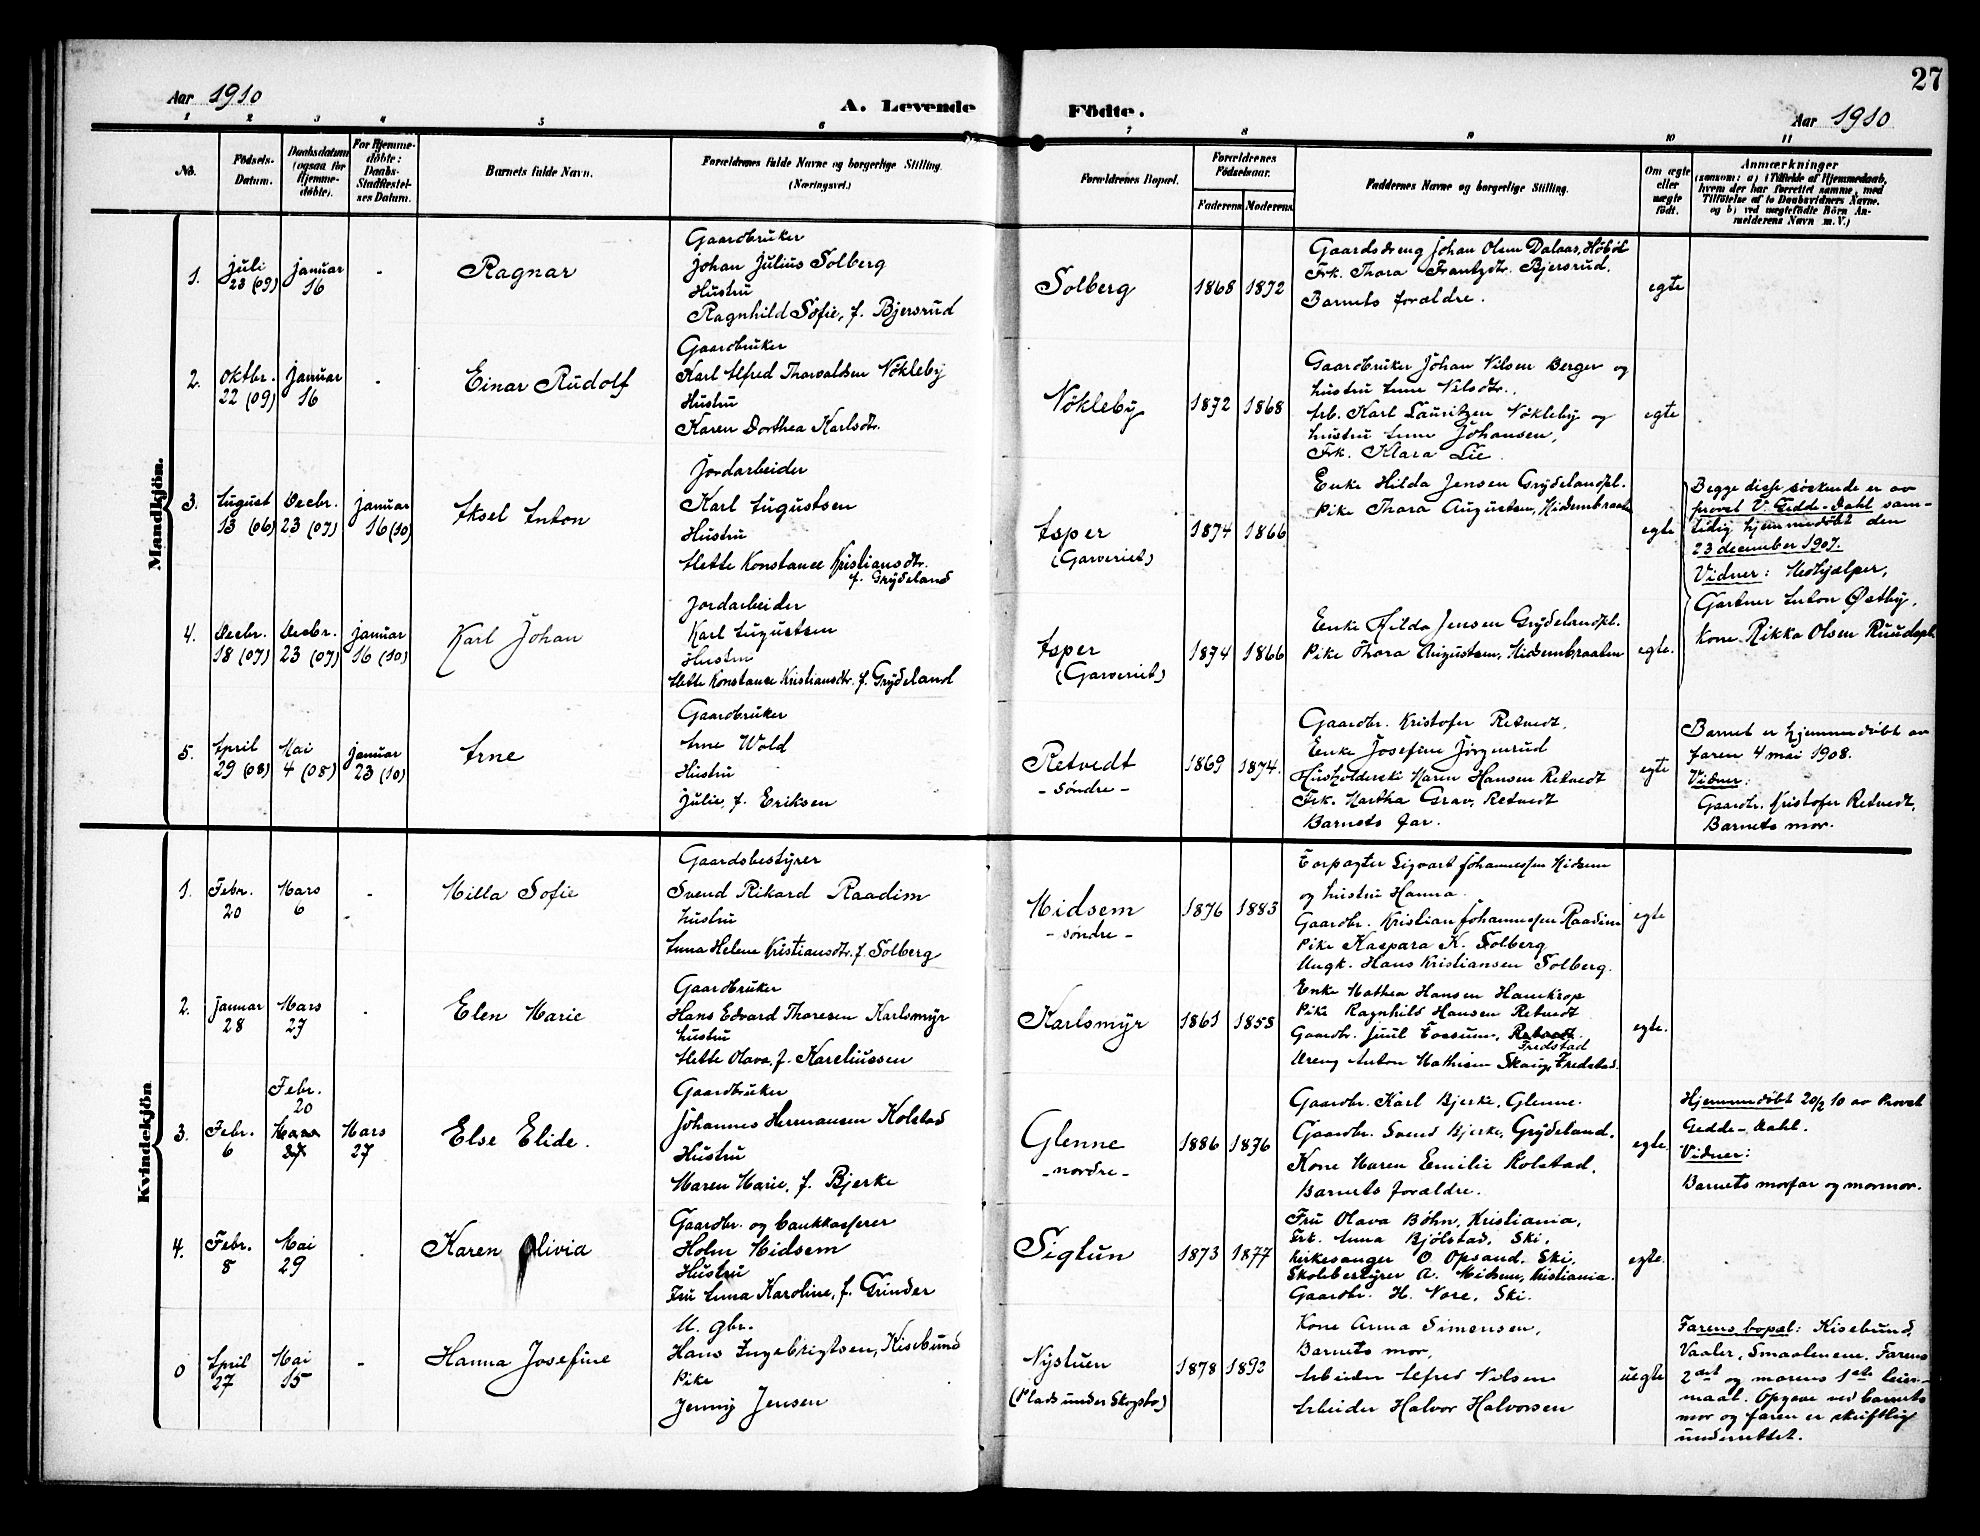 27
Aar 1910
A. Levende Födte.
Aar 1910
1 2 3 4 5 6 7 8 9 10 11
No.
Födsels-
Datum.
Daabsdatum
(ogsaa for
Hjemme-
döbte).
For Hjemme-
döbte:
Daabs-
Stadfæstel-
ses Datum.
Barnets fulde Navn.
Forældrenes fulde Navne og borgerlige Stilling.
(Næringsvei.)
Forældrenes Bopæl.
Forældrenes
Födselsaar.
Faderens
Moderens
Faddernes Navne og borgerlige Stilling.
Om ægte
eller
uægte
födt.
Anmærkninger
(saasom: a) i Tilfælde af Hjemmedaab,
hvem der har forrettet samme, med
Tilföielse af to Daabsvidners Navne.
og b) ved uægtefödte Börn An-
melderens Navn m. V.)
Mandkjön.
1.
juli
23 (09)
januar
16
-
Ragnar
Gaardbruker
Johan Julius Solberg
Hustru
Ragnhild Sofie, f. Bjersrud
Solberg
1868
1872
Gaardsdreng Johan Olsen Dalaas, Höböl
Frk. Thora Frantzdtr. Bjersrud.
Barnets forældre.
egte
2.
Oktbr.
22 (09)
Januar
16
-
Einar Rudolf
Gaardbruker
Karl Alfred Thorvaldsen Nökleby
Hustru
Karen Dorthea Karlsdtr.
Nökleby
1872
1868
Gaardbruker Johan Nilsen Berger og
hustru Anne Nilsdtr.,
Arb. Karl Lauritzen Nökleby og
hustru Anne Johansen,
Frk. Klara Lie.
egte
3.
August
13 (06)
Decbr.
23 (07)
januar
16 (10)
Aksel Anton
Jordarbeider
Karl Augustsen
Hustru
Mette Konstance Kristiansdtr.
f. Grydeland
Asper
(Garveriet)
1874
1866
Enke Hilda Jensen Grydelandpl.
Pike Thora Augustsen, Midsembraaten
egte
Begge disse söskende er av
provst V. Gedde-Dahl sam-
tidig hjemmedöbt den
23 december 1907.
Vidner: Medhjælper,
Gartner Anton Østby,
Kone Rikka Olsen Ruudspl.
4.
Decbr.
18 (07)
Decbr.
23 (07)
januar
16 (10)
Karl Johan
Jordarbeider
Karl Augustsen
Hustru
Mette Konstance Kristiansdtr. f. Grydeland
Asper
(Garveriet)
1874
1866
Enke Hilda Jensen Grydelandpl.
Pike Thora Augustsen, Midsembraaten
egte.
5.
April
29 (08)
Mai
4 (08)
Januar
23 (10)
Arne
Gaardbruker
Arne Wold
Hustru
Julie, f. Eriksen
Retvedt
- söndre -
1869
1874.
Gaardbr. Kristofer Retvedt.
Enke Josefine Jörgenrud
Husholderske Maren Hansen Retvedt
Frk. Martha Grav, Retvedt
Barnets far.
egte
Barnet er hjemmedöbt av
faren 4 mai 1908.
Vidner:
Gaardbr. Kristofer Retvedt,
Barnets mor.
Kvindekjön
1.
Febr.
20
Mars
6
-
Milla Sofie
Gaardsbestyrer
Svend Rikard Raadim
hustru
Anna Helene Kristiansdtr. f. Solberg
Midsem
- söndre -
1876
1883
Forpagter Sigvart Johannessen Midsem
og hustru Hanna.
Gaardbr. Kristian Johannessen Raadim
Pike Kaspara K. Solberg
Ungk. Hans Kristiansen Solberg.
egte
2.
Januar
28
Mars
27
-
Elen Marie
Gaardbruker
Hans Edvard Thoresen Karlsmyr
hustru
Mette Olava, f. Kareliussen
Karlsmyr
1861
1858
Enke Mathea Hansen Haukrop
Pike Ragnhild Hansen Retvedt
Gaardbr. Juul Fossum, Retvedt.
Fredstad
Dreng Anton Mathisen Skaug, Fredstad.
egte.
3.
Febr.
6
Febr.
20
Mars
27
Mars
27
Else Elide.
Gaardbruker
Johannes Hermansen Kolstad
Hustru
Maren Marie, f. Bjerke
Glenne
- nordre -
1886
1876
Gaardbr. Karl Bjerke, Glenne.
Gaardbr. Svend Bjerke, Grydeland.
Kone Maren Emilie Kolstad.
Barnets forældre.
egte.
Hjemmedöbt 20/2 10 av Provst
Gedde-Dahl.
Vidner:
Barnets morfar og mormor.
4.
Febr.
8
Mai
29
.
Karen Olivia
Gaardbr. og bankkasserer
Holm Midsem
Hustru
Fru Anna Karoline, f. Grinder
Sigtun
1873
1877
Fru Olava Böhn, Kristiania,
Frk. Anna Bjölstad, Ski,
Kirkesanger O. Opsand. Ski,
Skolebestyrer A. Midsem, Kristiania.
Gaardbr. H. Nore, Ski.
egte.
0
April
27
Mai
15
-
Hanna Josefine
U. gbr.
Hans Ingebrigtsen, Kisebund
Pike
Jenny Jensen
Nystuen
(Plads under Skogsto)
1878
1892
Kone Anna Simensen,
Barnets mor,
Arbeider Alfred Nilsen
Arbeider Halvor Halvorsen
uegte
Farens bopæl: Kisebund,
Vaaler, Smaalenene. Farens
2det og morens 1ste leier-
maal. Opgave ved barnets
mor og faren er skriftlig
underrettet.